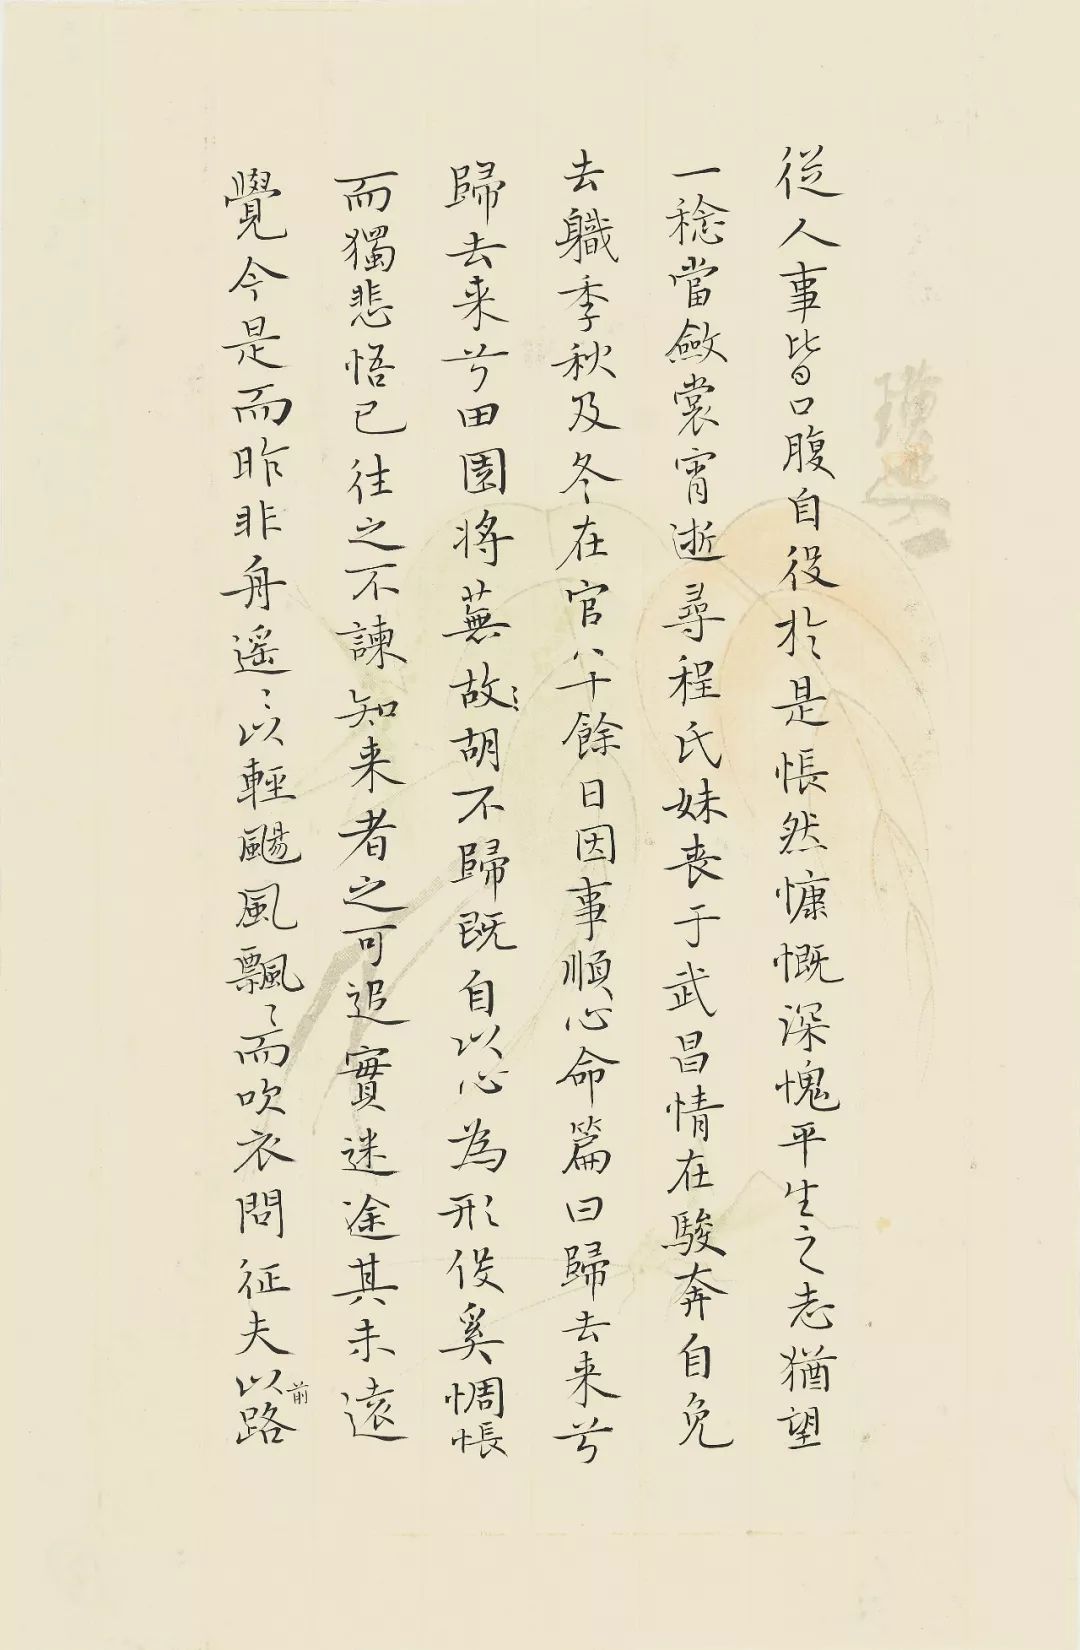 從人事皆口腹自役於是悵然慷慨深愧平生之志猶望
一稔當斂裳宵逝尋程氏妹喪于武昌情在駿奔自免
去職季秋及冬在官八十餘日因事順心命篇曰歸去来兮
歸去来兮田園將蕪故〻胡不歸既自以心為形役奚惆悵
而獨悲悟已往之不諫知来者之可追實迷途其未遠
覺今是而昨非舟遥〻以輕颺風飄〻而吹衣問征夫以前路